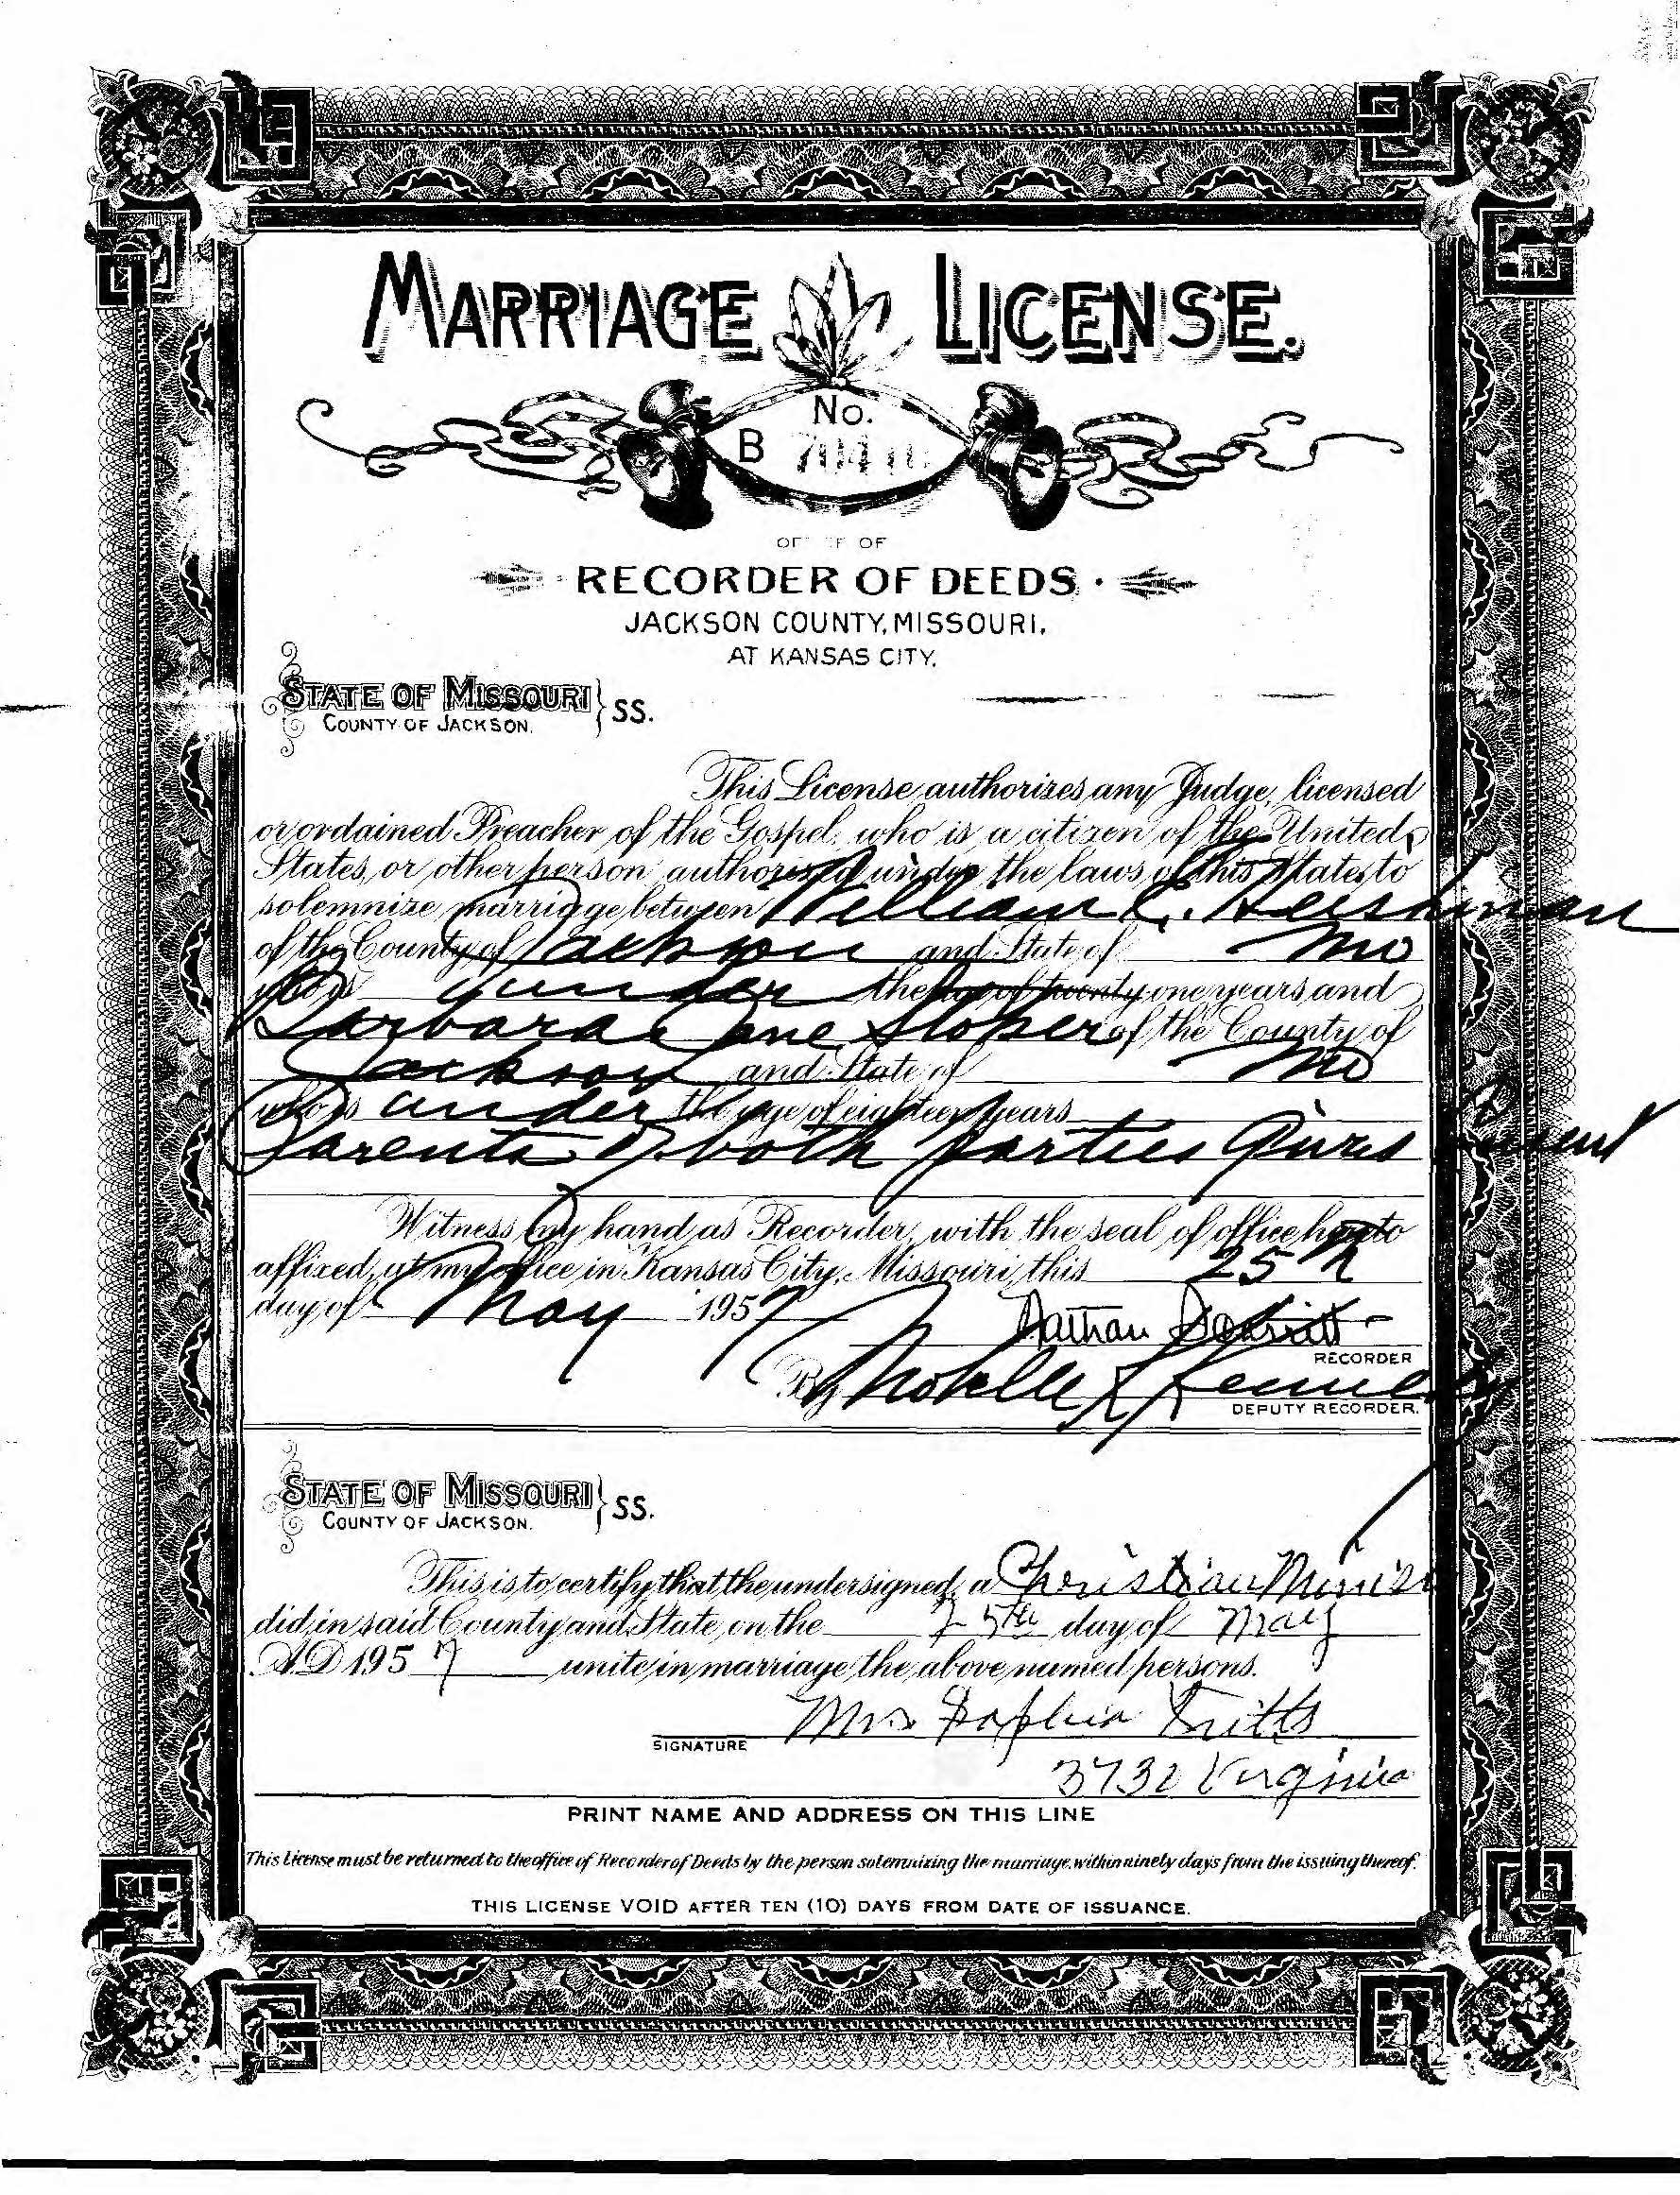 MARRIAGE LICENSE.
No.
B
OF
RECORDER OF DEEDS
JACKSON COUNTY, MISSOURI.
AT KANSAS CITY.
STATE OF MISSOURI } SS.
COUNTY OF JACKSON.
This License authorizes any Judge, licensed
or ordained Preacher of the Gospel, who is a citizen of the United
States, or other person authorized under the laws of this State, to
solemnize marriage between William C. Hershman
of the County of Jackson and State of Mo
who is under the age of twenty one years, and
Barbara Jane Sloper of the County of
Jackson and State of Mo
who is under the age of eighteen years
Parents of both parties gives consent
Witness my hand as Recorder, with the seal of office hereto
affixed, at my office in Kansas City, Missouri, this 25th
day of May 1957
Nathan
RECORDER
By
DEPUTY RECORDER.
STATE OF MISSOURI } SS.
COUNTY OF JACKSON.
This is to certify that the undersigned, a Christian Minister
did, in said County and State, on the 25th day of May
A.D. 1957 unite in marriage the above named persons.
Mrs Fritts
SIGNATURE
3732 Virginia
PRINT NAME AND ADDRESS ON THIS LINE
This License must be returned to the office of Recorder of Deeds by the person solemnizing the marriage, within ninety days from the issuing thereof.
THIS LICENSE VOID AFTER TEN (10) DAYS FROM DATE OF ISSUANCE.